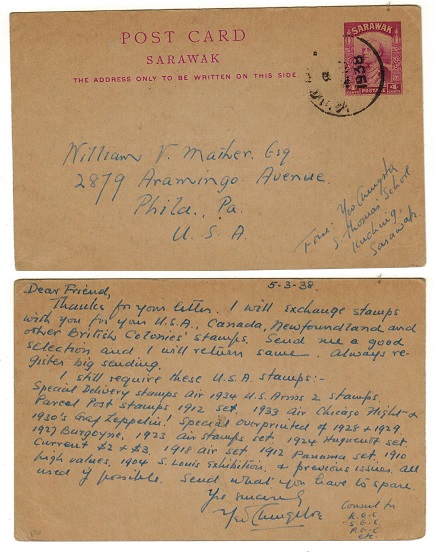 POST CARD
SARAWAK
THE ADDRESS ONLY TO BE WRITTEN ON THIS SIDE.
SARAWAK
POSTAGE
William V. Mather. Esq
2879 Aramingo Avenue.
Phild., Pa.
U. S. A.
From:
S. Thomas School
Kuching,
Sarawak
5-3-38.
Dear Friend,
Thanks for your letter. I will exchange stamps
with you for your U.S.A., Canada, Newfoundland and
other British Colonies' stamps. Send me a good
selection and I will return same. Always re-
gister big sending.
I still require these U.S.A. stamps:-
Special Delivery stamps air 1934 U.S. Arms 2 stamps,
Parcel Post stamps 1912 set, 1933 air Chicago Flight &
1930's Graf Zeppelin! Special overprinted of 1928 & 1929,
1927 Burgoyne, 1923 air stamps set, 1924 Huguenot set
Current £2 & £3, 1918 air set 1912 Panama set, 1910
high values, 1904 S. Louis Exhibition, & previous issues, all
used if possible. Send what you have to spare.
Yrs sincerely
etc.